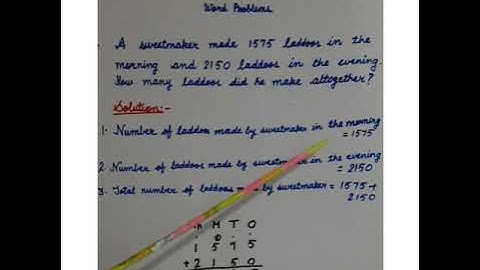 Word Problems
A sweetmaker made 1575 laddoos in the
morning and 2150 laddoos in the evening.
How many laddoos did he make altogether?
Solution:-
1. Number of laddoos made by sweetmaker in the morning
= 1575
2. Number of laddoos made by in the evening
= 2150
3. Total number of laddoos by sweetmaker = 1575 +
2150
H T O
1 5 7 5
+ 2 1 5 0